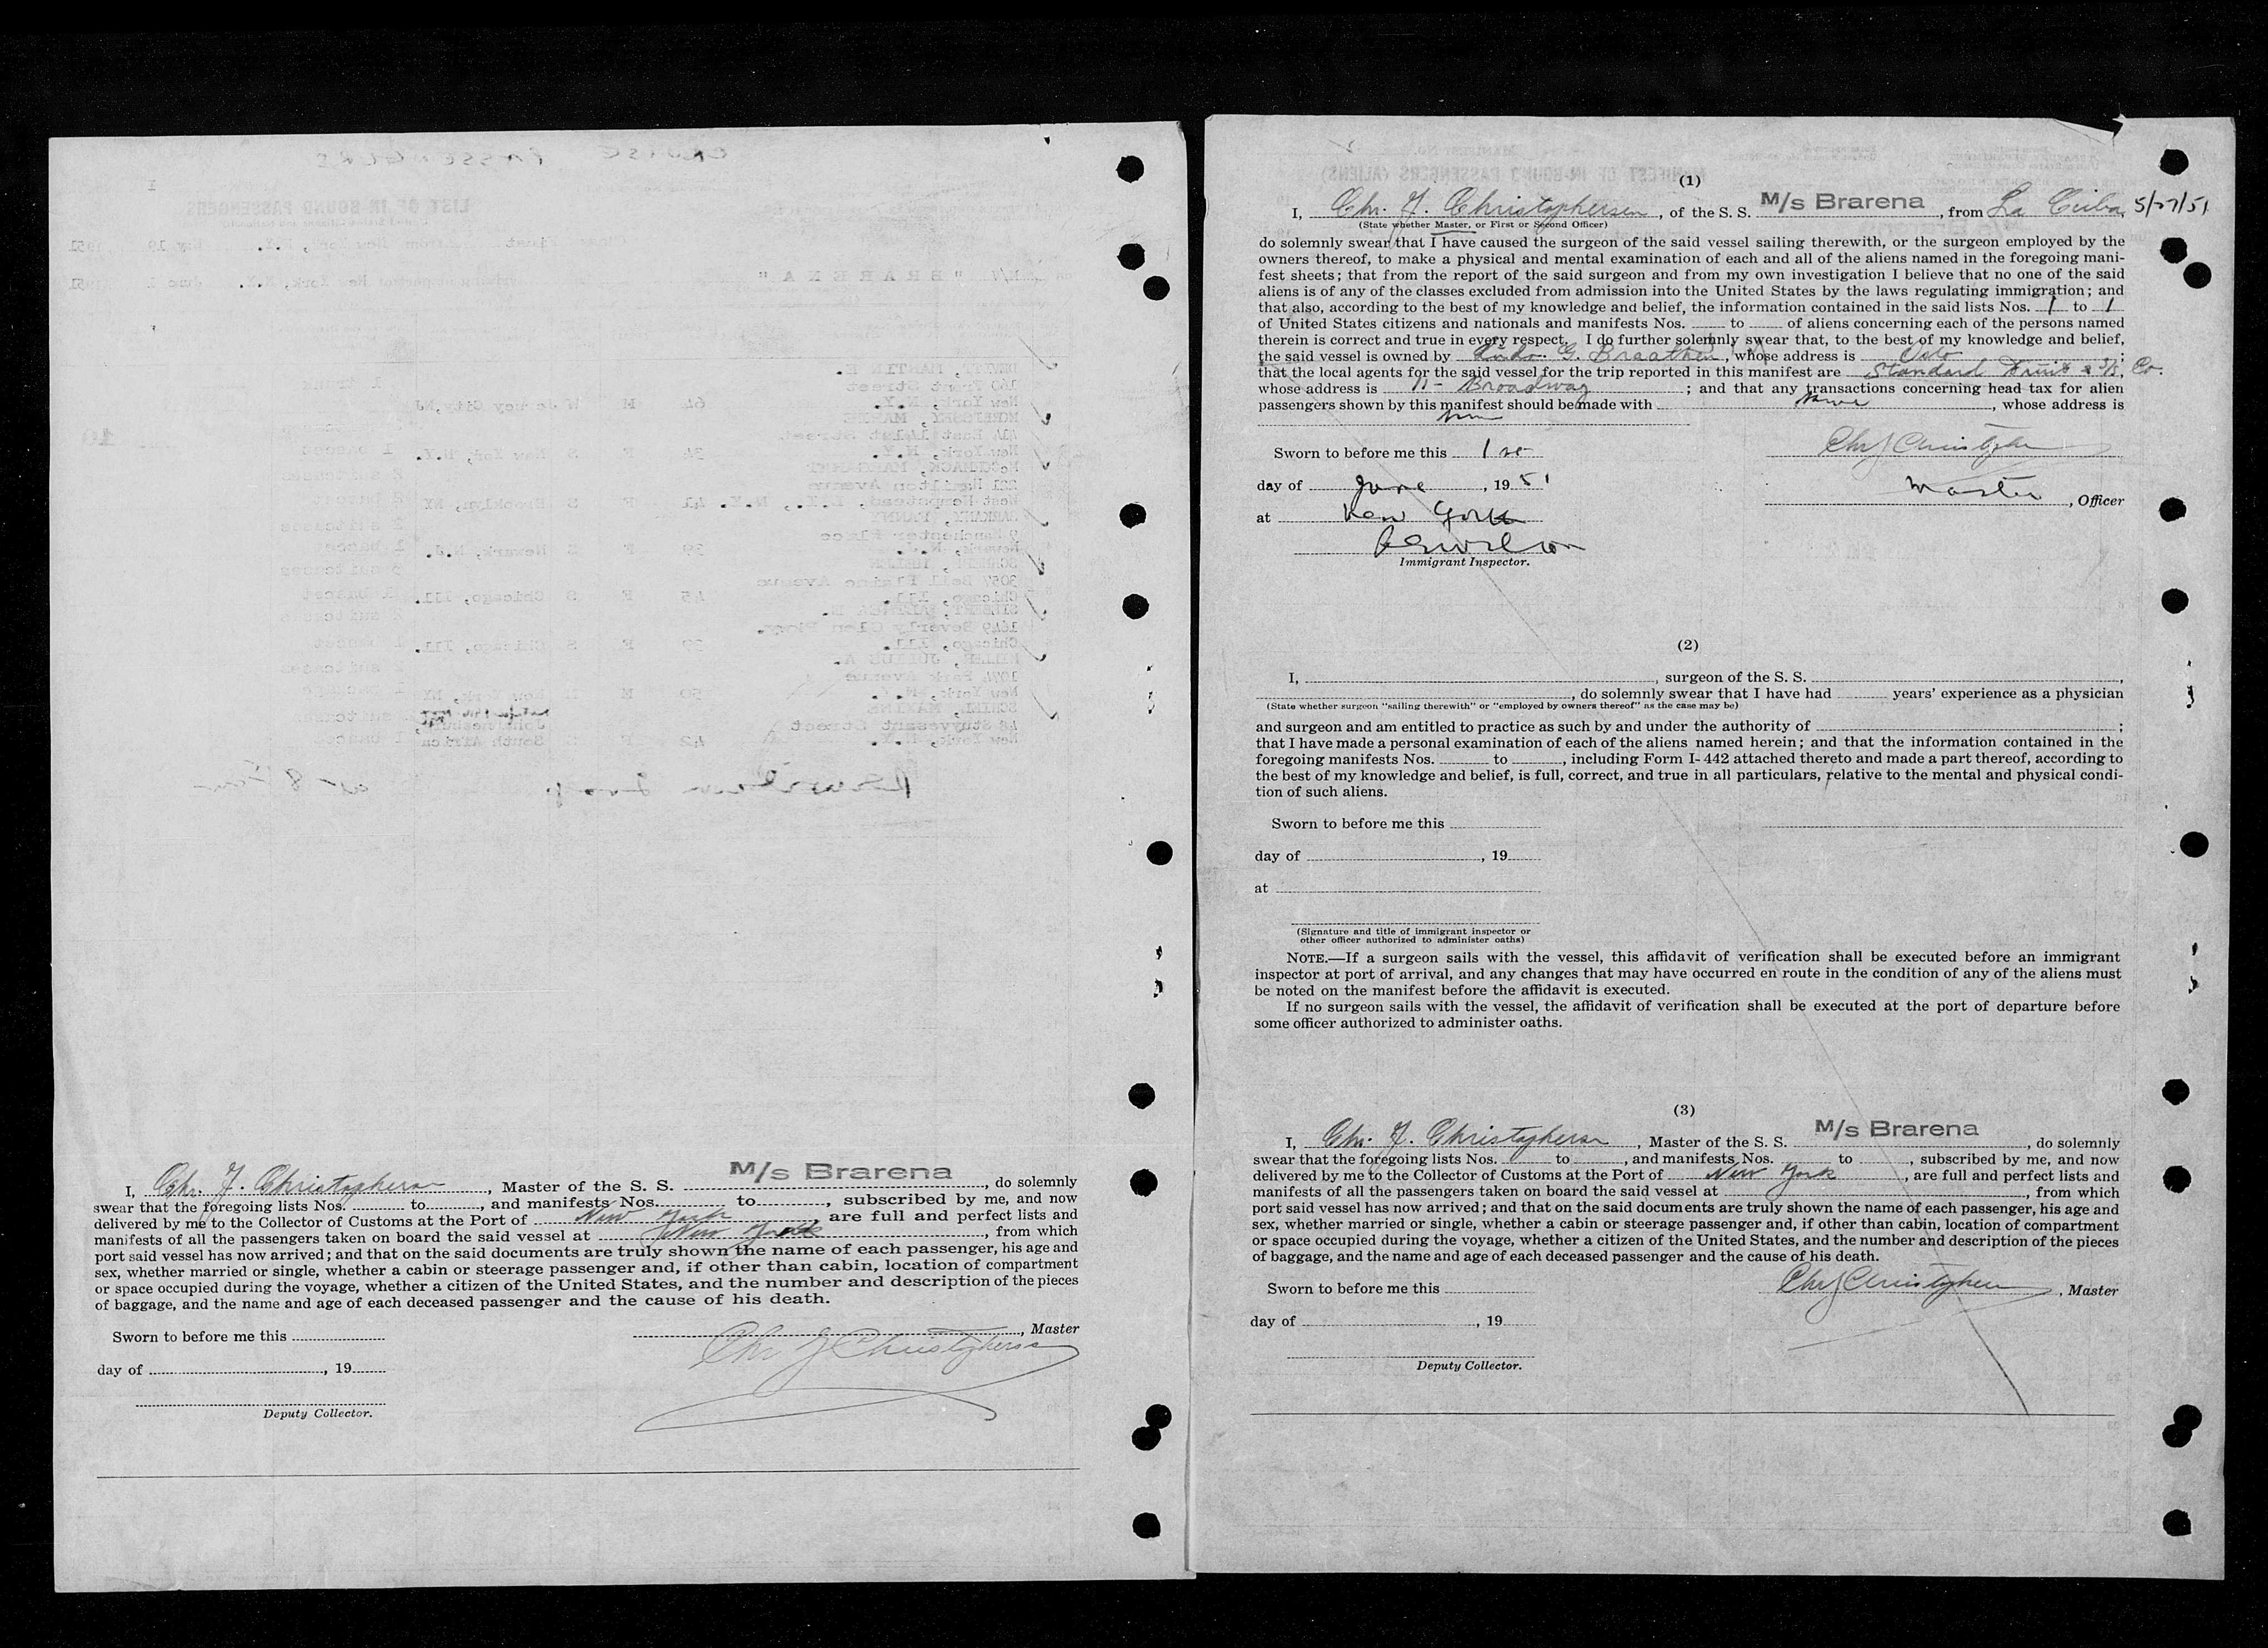 I, Chr. J. Christophersen, Master of the S. S. M/s Brarena, do solemnly
swear that the foregoing lists Nos. to, and manifests Nos. to, subscribed by me, and now
delivered by me to the Collector of Customs at the Port of New York, are full and perfect lists and
manifests of all the passengers taken on board the said vessel at New York, from which
port said vessel has now arrived; and that on the said documents are truly shown the name of each passenger, his age and
sex, whether married or single, whether a cabin or steerage passenger and, if other than cabin, location of compartment
or space occupied during the voyage, whether a citizen of the United States, and the number and description of the pieces
of baggage, and the name and age of each deceased passenger and the cause of his death.
Sworn to before me this
Chr J Christophersen, Master
day of, 19
Deputy Collector.
(1)
I, Chr. J. Christophersen, of the S. S. M/s Brarena, from La Ceiba, 5/27/51
(State whether Master, or First or Second Officer)
do solemnly swear that I have caused the surgeon of the said vessel sailing therewith, or the surgeon employed by the
owners thereof, to make a physical and mental examination of each and all of the aliens named in the foregoing mani-
fest sheets; that from the report of the said surgeon and from my own investigation I believe that no one of the said
aliens is of any of the classes excluded from admission into the United States by the laws regulating immigration; and
that also, according to the best of my knowledge and belief, the information contained in the said lists Nos. 1 to 1
of United States citizens and nationals and manifests Nos. to of aliens concerning each of the persons named
therein is correct and true in every respect. I do further solemnly swear that, to the best of my knowledge and belief,
the said vessel is owned by G. Braathen, whose address is Oslo;
that the local agents for the said vessel for the trip reported in this manifest are Standard Fruit & S/S. Co.
whose address is 11 - Broadway; and that any transactions concerning head tax for alien
passengers shown by this manifest should be made with, whose address is
Sworn to before me this 1 st
Chr J Christophersen
day of June, 1951
Master, Officer
at New York
Immigrant Inspector.
(2)
I, , surgeon of the S. S. ,
, do solemnly swear that I have had years' experience as a physician
(State whether surgeon "sailing therewith" or "employed by owners thereof" as the case may be)
and surgeon and am entitled to practice as such by and under the authority of ;
that I have made a personal examination of each of the aliens named herein; and that the information contained in the
foregoing manifests Nos. to , including Form I-442 attached thereto and made a part thereof, according to
the best of my knowledge and belief, is full, correct, and true in all particulars, relative to the mental and physical condi-
tion of such aliens.
Sworn to before me this
day of , 19
at
(Signature and title of immigrant inspector or
other officer authorized to administer oaths)
NOTE.—If a surgeon sails with the vessel, this affidavit of verification shall be executed before an immigrant
inspector at port of arrival, and any changes that may have occurred en route in the condition of any of the aliens must
be noted on the manifest before the affidavit is executed.
If no surgeon sails with the vessel, the affidavit of verification shall be executed at the port of departure before
some officer authorized to administer oaths.
(3)
I, Chr. J. Christophersen, Master of the S. S. M/s Brarena, do solemnly
swear that the foregoing lists Nos. to , and manifests Nos. to , subscribed by me, and now
delivered by me to the Collector of Customs at the Port of New York, are full and perfect lists and
manifests of all the passengers taken on board the said vessel at , from which
port said vessel has now arrived; and that on the said documents are truly shown the name of each passenger, his age and
sex, whether married or single, whether a cabin or steerage passenger and, if other than cabin, location of compartment
or space occupied during the voyage, whether a citizen of the United States, and the number and description of the pieces
of baggage, and the name and age of each deceased passenger and the cause of his death.
Sworn to before me this
Chr J Christophersen, Master
day of , 19
Deputy Collector.